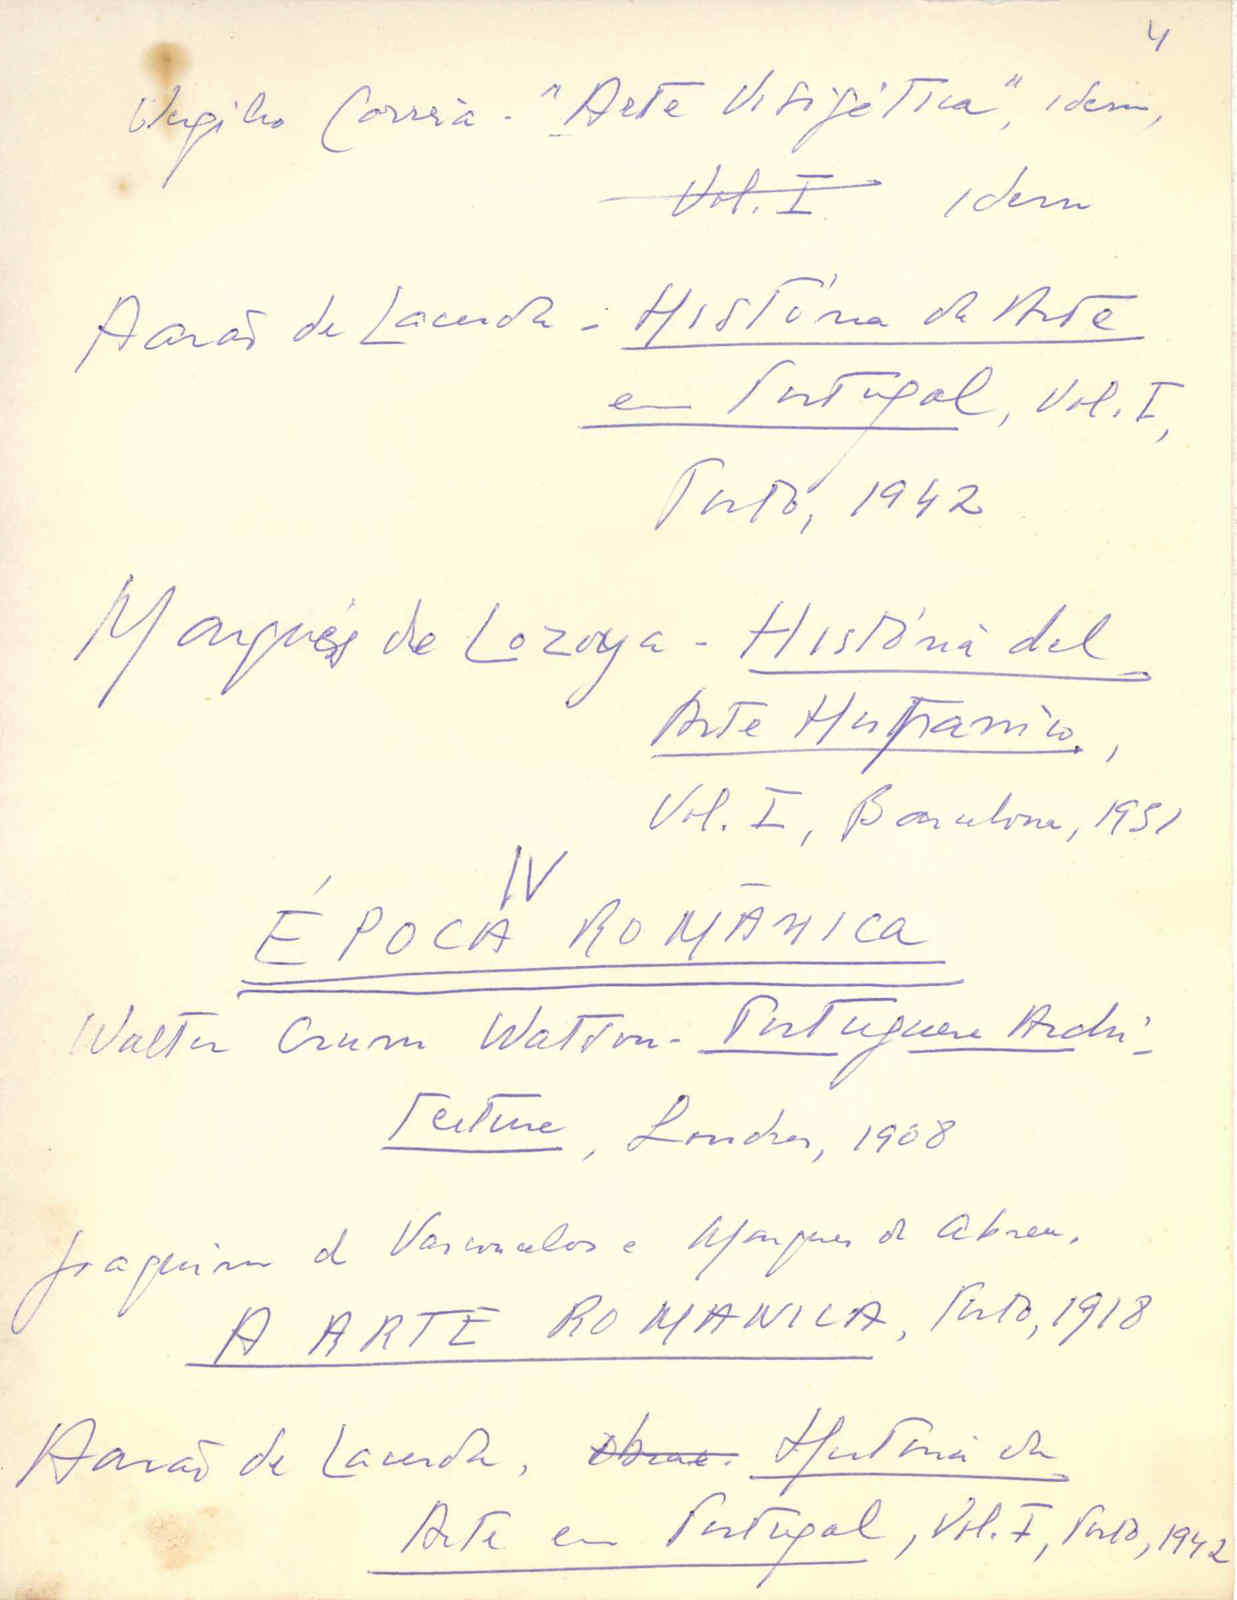 4
Vergilio Correia - "Arte Visigótica", idem,
Vol. I idem
Aarão de Lacerda - História da Arte
em Portugal, Vol. I,
Porto, 1942
Marqués de Lozoya - História del
Arte Hispanico,
Vol. I, Barcelona, 1931
IV
ÉPOCA ROMÂNICA
Walter Crum Watson - Portuguese Archi-
tecture, Londres, 1908
Joaquim de Vasconcelos e Marques de Abreu.
A ARTE ROMANICA, Porto, 1918
Aarão de Lacerda, História da
Arte em Portugal, Vol. I, Porto, 1942